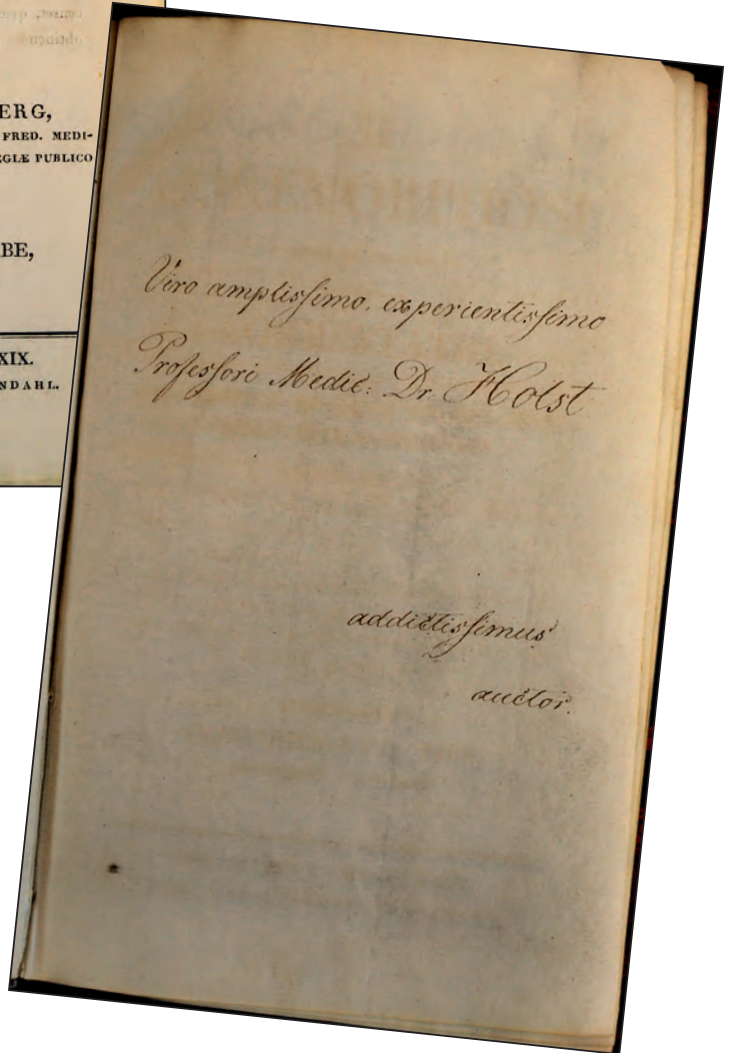 ERG,
FRED. MEDI-
EGLÆ PUBLICO
BE,
XIX.
NDAHL.
Viro amplissimo, experientissimo
Professori Medic: Dr. Holst
addictissimus
auctor.